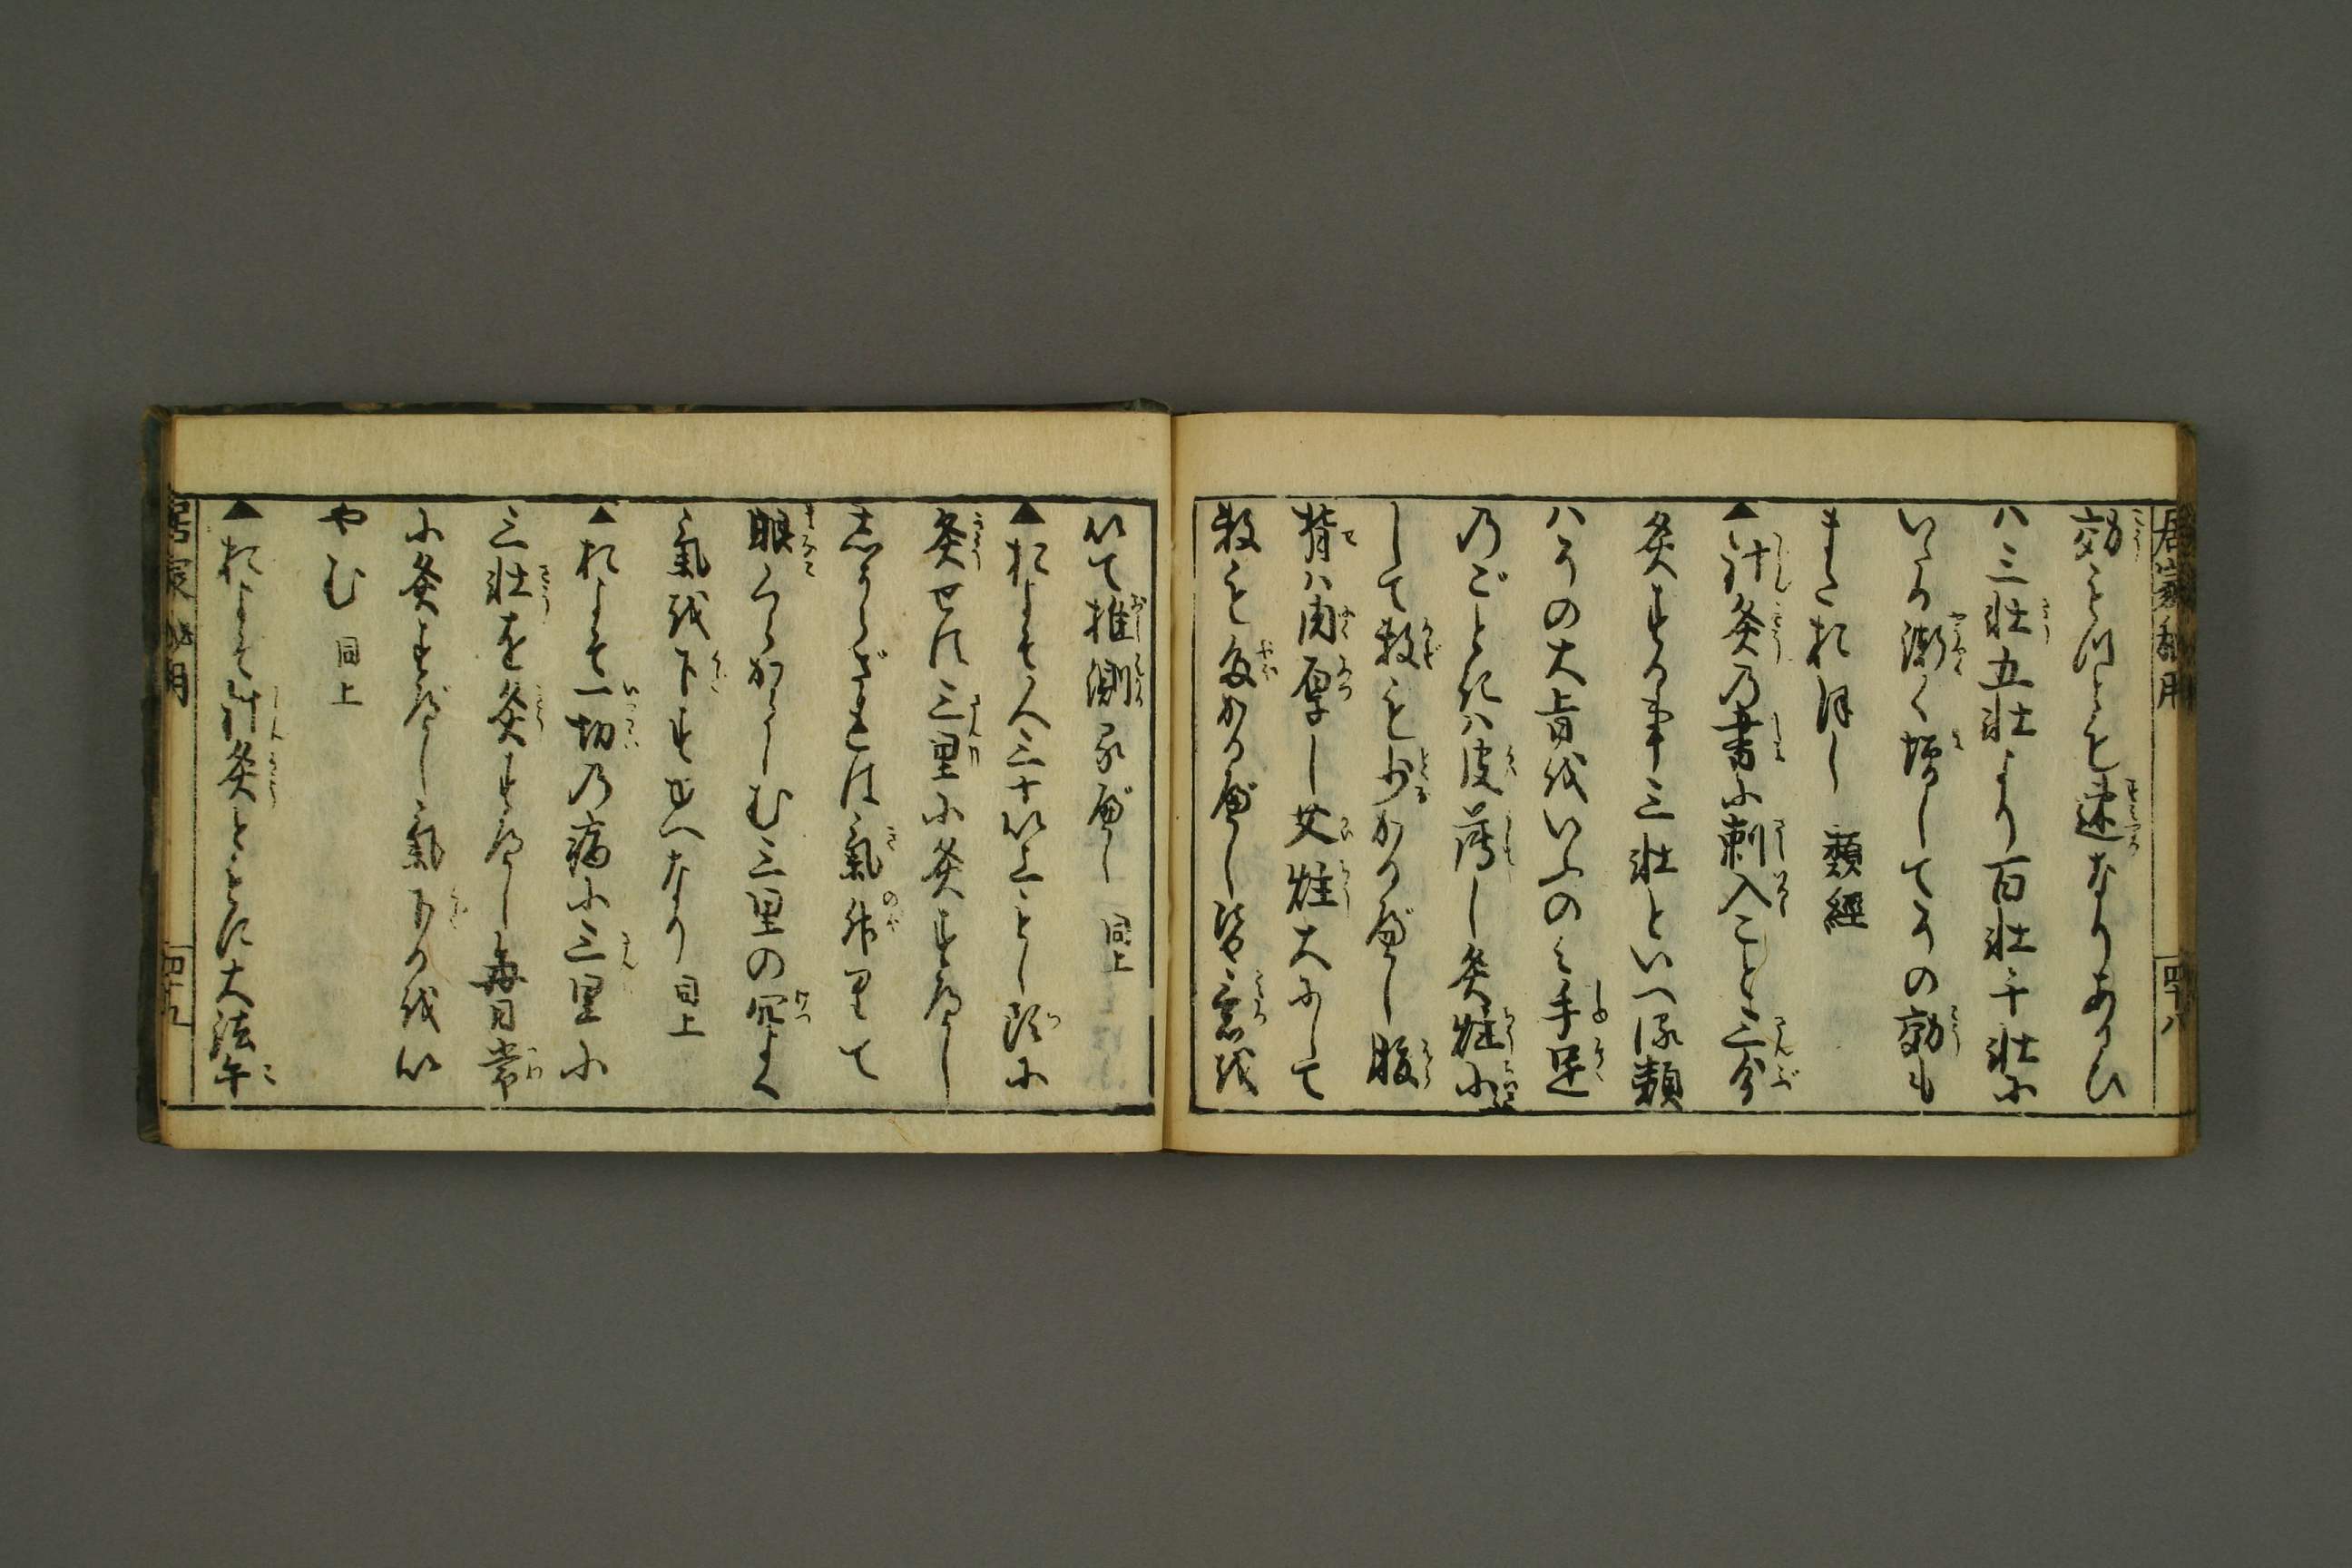 居家秘用
四十八
効をとることも速なりあるひ
ハ三壮五壮より百壮千壮に
いたる漸く増してその効も
またおほし 類經
▲針灸の書に刺入こと三分
灸する事三壮といへる類
ハその大旨をいふのミ手足
のごときハ皮薄し灸炷小に
して数も少かるべし腹
背ハ肉厚し艾炷大にして
数も多かるべし皆意を
以て推測るべし 同上
▲およそ人三十以上ことし頭に
灸せば三里に灸すべし
しからざれば氣升りて
眼くらからしむ三里の穴よく
氣を下すゆへなり 同上
▲およそ一切の病に三里に
三壮を灸すべし毎日常
に灸すべし氣下るを以
やむ 同上
▲およそ針灸ともに大法午
居家秘用
四十九